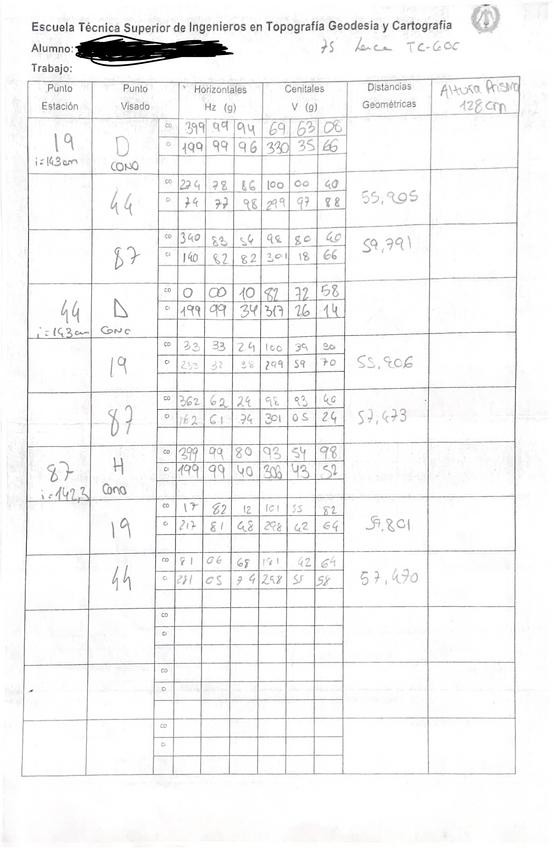 Escuela Técnica Superior de Ingenieros en Topografía Geodesia y Cartografía
Alumno: 75 Leica TC-600
Trabajo:
Punto Estación Punto Visado Horizontales Hz (g) Cenitales V (g) Distancias Geométricas Altura Prisma 128 cm
19 D CD 399 99 94 69 63 08
i=143cm CONO CI 199 99 96 330 35 66
44 CD 274 78 86 100 00 40 55,905
CI 74 77 98 299 97 88
87 CD 340 83 54 98 80 40 59,791
CI 140 82 82 301 18 66
44 D CD 0 00 10 82 72 58
i=143cm CONO CI 199 99 34 317 26 14
19 CD 33 33 24 100 39 30 55,906
CI 299 59 70
87 CD 362 62 24 98 93 40 57,473
CI 162 61 74 301 05 24
87 H CD 399 99 80 93 54 98
i=142,3 CONO CI 199 99 40 306 43 52
19 CD 17 82 12 101 55 82 59,801
CI 217 81 48 298 42 64
44 CD 81 06 68 101 42 64 57,470
CI 281 05 74 298 55 58
CD
CI
CD
CI
CD
CI